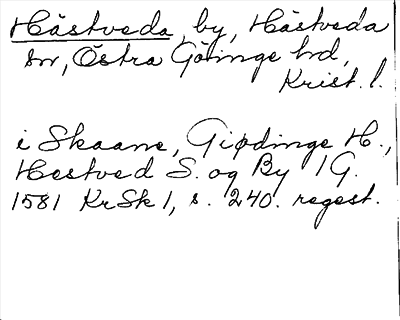 Hästveda, by, Hästveda
sn, Östra Göinge hd,
Krist. l.
i Skaane, Giødinge H.,
Hestved S. og By 1 G.
1581 KrSk 1, s. 240. regest.